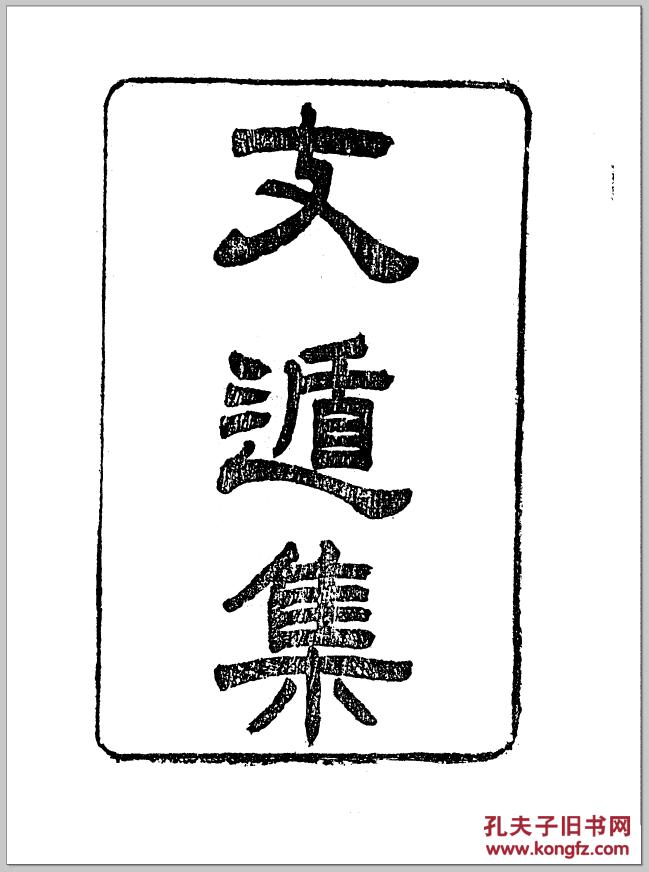 支遁集
孔夫子旧书网
www.kongfz.com